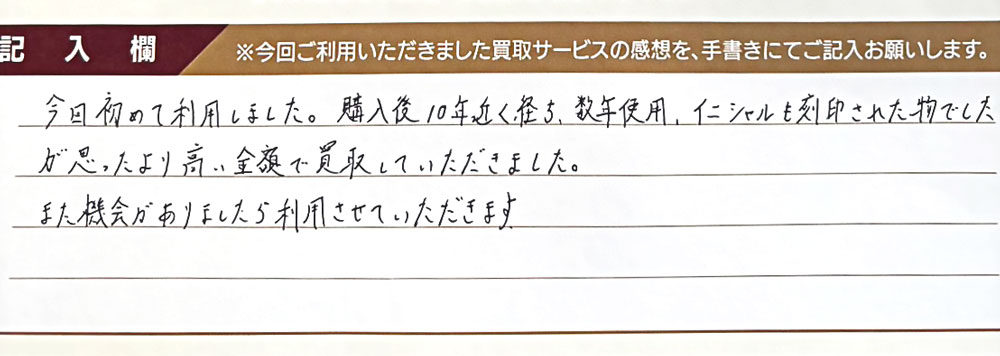 記入欄
※今回ご利用いただきました買取サービスの感想を、手書きにてご記入お願いします。
今回初めて利用しました。購入後10年近く経ち、数年使用、イニシャルも刻印された物でした
が思ったより高い金額で買取していただきました。
また機会がありましたら利用させていただきます